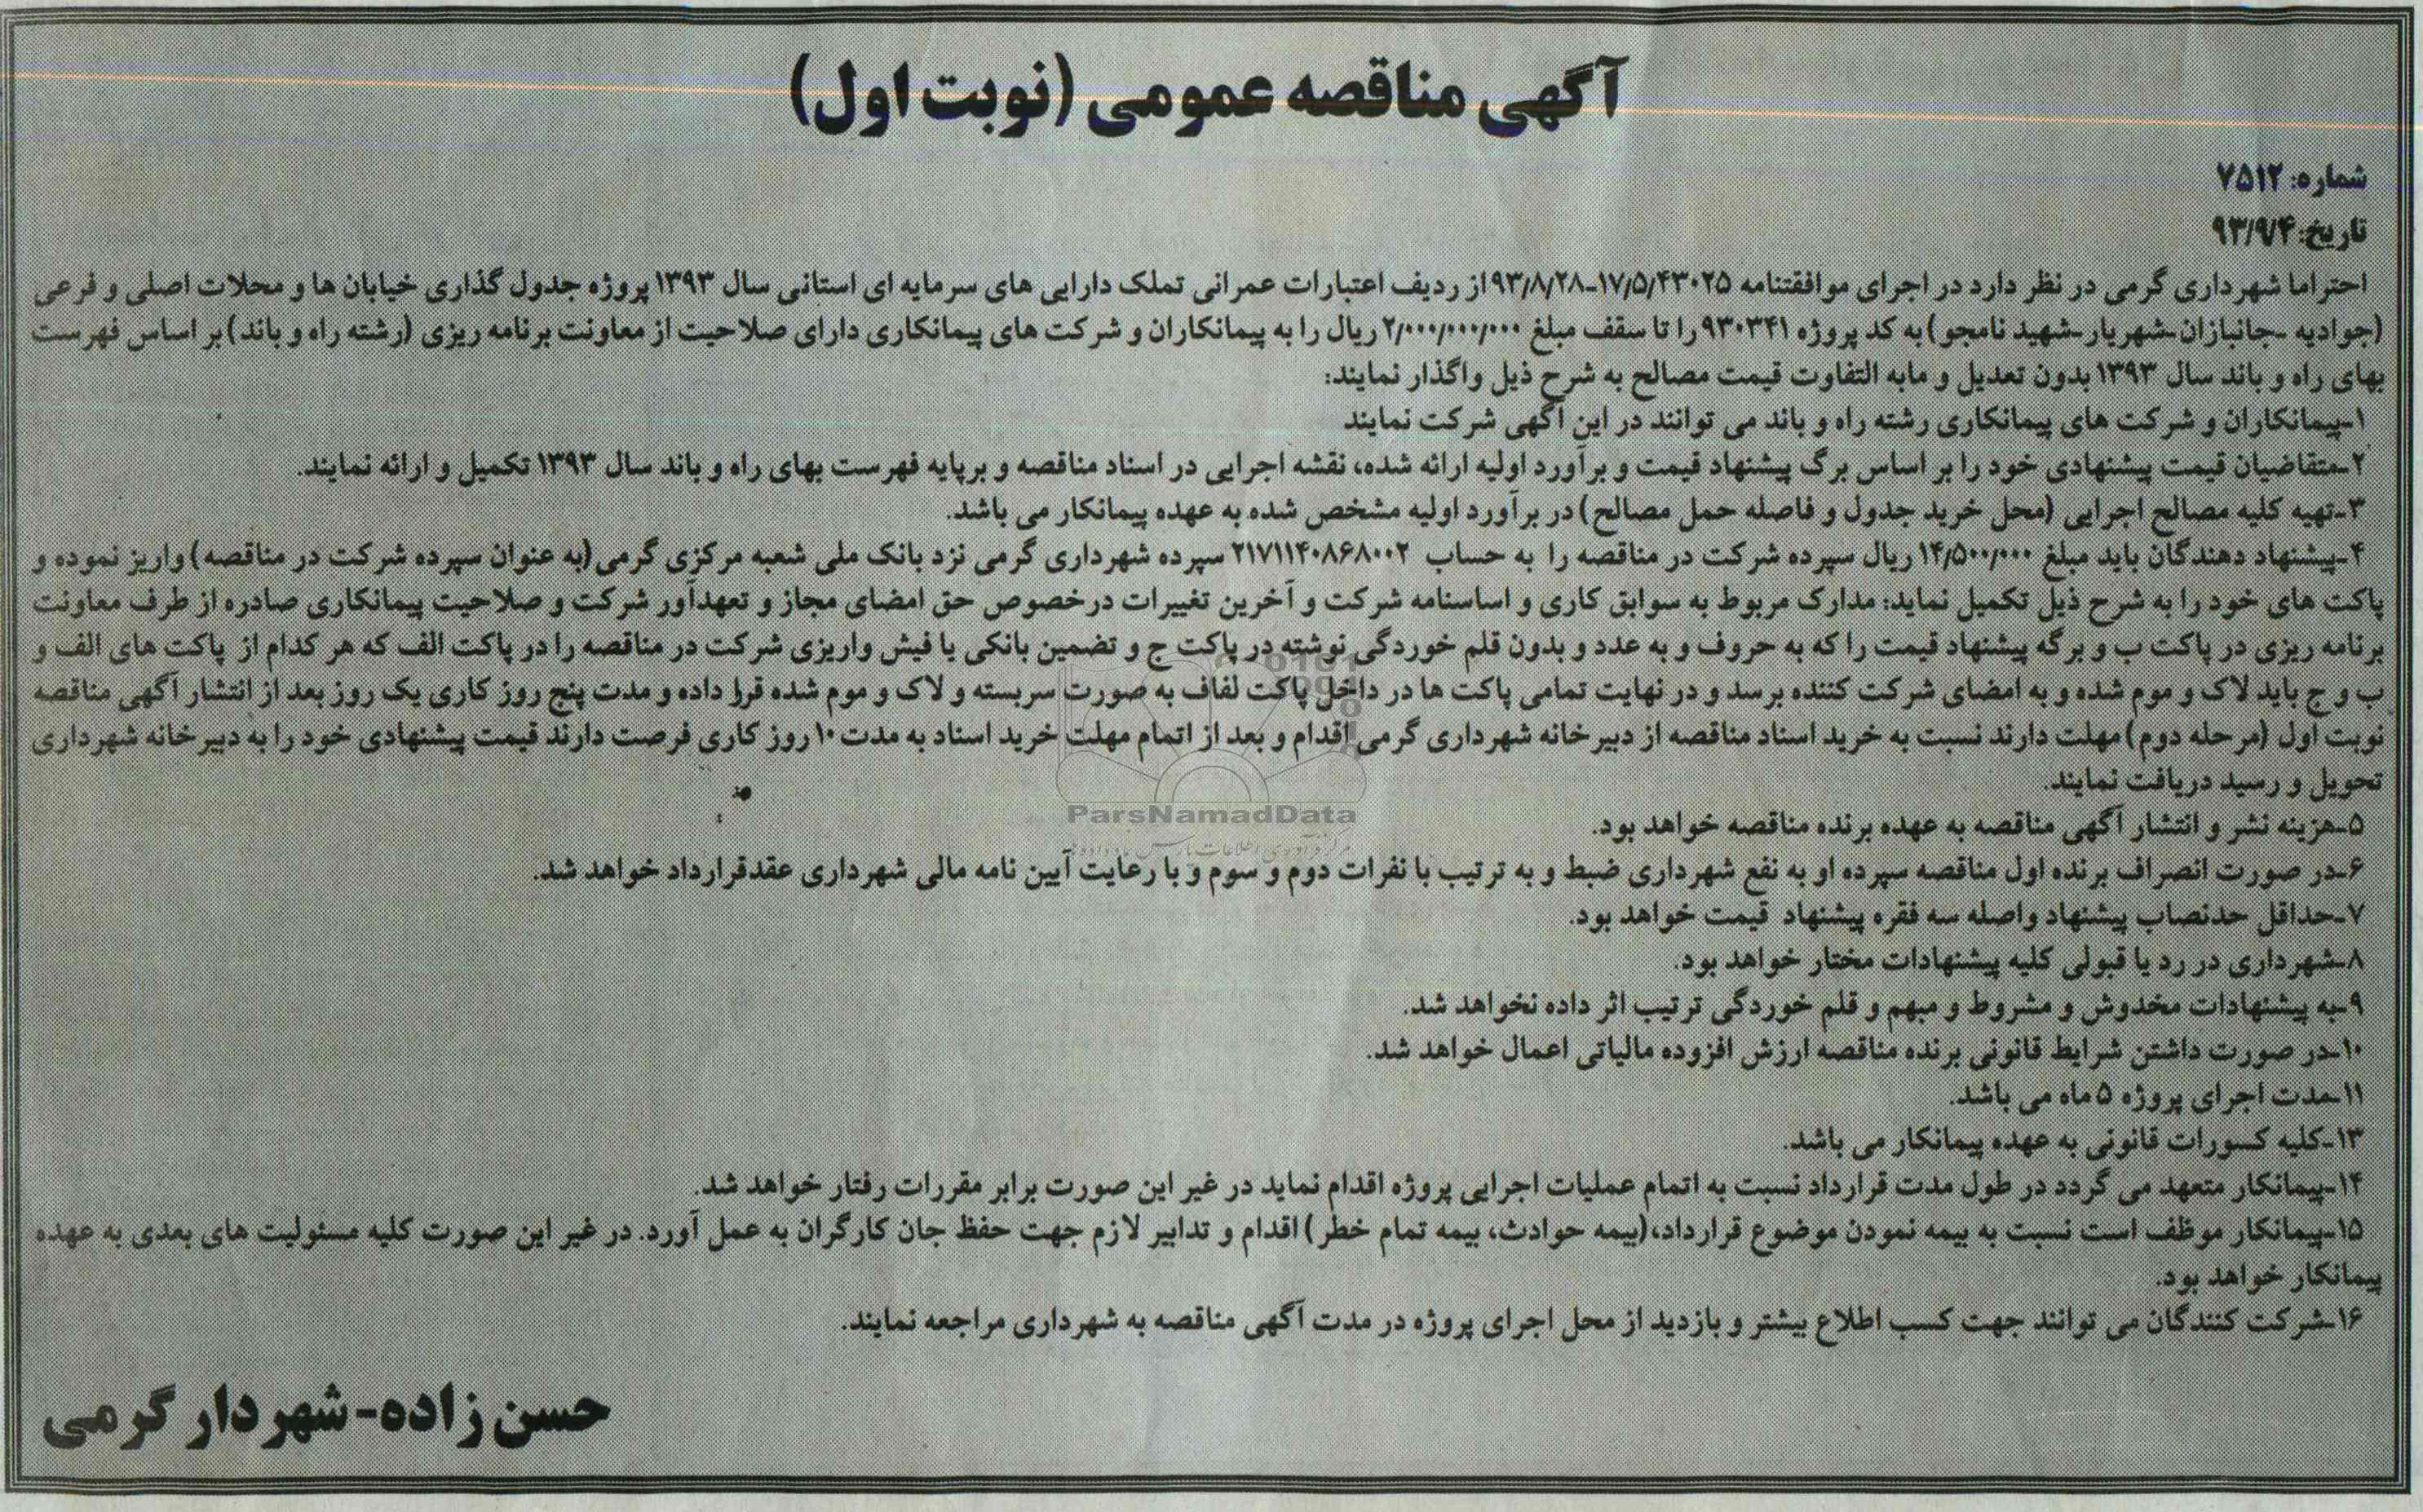 آگهی مناقصه عمومی (نوبت اول)
شماره: ۷۵۱۲
تاریخ: ۹۳/۹/۴
احتراما شهرداری گرمی در نظر دارد در اجرای موافقتنامه ۱۷/۵/۴۳۰۲۵-۹۳/۸/۲۸ از ردیف اعتبارات عمرانی تملک دارایی های سرمایه ای استانی سال ۱۳۹۳ پروژه جدول گذاری خیابان ها و محلات اصلی و فرعی
(جوادیه -جانبازان-شهریار-شهید نامجو) به کد پروژه ۹۳۰۳۴۱ را تا سقف مبلغ ۲/۰۰۰/۰۰۰/۰۰۰ ریال را به پیمانکاران و شرکت های پیمانکاری دارای صلاحیت از معاونت برنامه ریزی (رشته راه و باند) بر اساس فهرست
بهای راه و باند سال ۱۳۹۳ بدون تعدیل و مابه التفاوت قیمت مصالح به شرح ذیل واگذار نمایند:
۱-پیمانکاران و شرکت های پیمانکاری رشته راه و باند می توانند در این آگهی شرکت نمایند
۲-متقاضیان قیمت پیشنهادی خود را بر اساس برگ پیشنهاد قیمت و برآورد اولیه ارائه شده، نقشه اجرایی در اسناد مناقصه و برپایه فهرست بهای راه و باند سال ۱۳۹۳ تکمیل و ارائه نمایند.
۳-تهیه کلیه مصالح اجرایی (محل خرید جدول و فاصله حمل مصالح) در برآورد اولیه مشخص شده به عهده پیمانکار می باشد.
۴-پیشنهاد دهندگان باید مبلغ ۱۴/۵۰۰/۰۰۰ ریال سپرده شرکت در مناقصه را به حساب ۲۱۷۱۱۴۰۸۶۸۰۰۲ سپرده شهرداری گرمی نزد بانک ملی شعبه مرکزی گرمی (به عنوان سپرده شرکت در مناقصه) واریز نموده و
پاکت های خود را به شرح ذیل تکمیل نماید: مدارک مربوط به سوابق کاری و اساسنامه شرکت و آخرین تغییرات درخصوص حق امضای مجاز و تعهدآور شرکت و صلاحیت پیمانکاری صادره از طرف معاونت
برنامه ریزی در پاکت ب و برگه پیشنهاد قیمت را که به حروف و به عدد و بدون قلم خوردگی نوشته در پاکت ج و تضمین بانکی یا فیش واریزی شرکت در مناقصه را در پاکت الف که هر کدام از پاکت های الف و
ب و ج باید لاک و موم شده و به امضای شرکت کننده برسد و در نهایت تمامی پاکت ها در داخل پاکت لفاف به صورت سربسته و لاک و موم شده قرار داده و مدت پنج روز کاری یک روز بعد از انتشار آگهی مناقصه
نوبت اول (مرحله دوم) مهلت دارند نسبت به خرید اسناد مناقصه از دبیرخانه شهرداری گرمی اقدام و بعد از اتمام مهلت خرید اسناد به مدت ۱۰ روز کاری فرصت دارند قیمت پیشنهادی خود را به دبیرخانه شهرداری
تحویل و رسید دریافت نمایند.
ParsNamadData
۵-هزینه نشر و انتشار آگهی مناقصه به عهده برنده مناقصه خواهد بود.
۶-در صورت انصراف برنده اول مناقصه سپرده او به نفع شهرداری ضبط و به ترتیب با نفرات دوم و سوم و با رعایت آیین نامه مالی شهرداری عقدقرارداد خواهد شد.
۷-حداقل حدنصاب پیشنهاد واصله سه فقره پیشنهاد قیمت خواهد بود.
۸-شهرداری در رد یا قبولی کلیه پیشنهادات مختار خواهد بود.
۹-به پیشنهادات مخدوش و مشروط و مبهم و قلم خوردگی ترتیب اثر داده نخواهد شد.
۱۰-در صورت داشتن شرایط قانونی برنده مناقصه ارزش افزوده مالیاتی اعمال خواهد شد.
۱۱-مدت اجرای پروژه ۵ ماه می باشد.
۱۳-کلیه کسورات قانونی به عهده پیمانکار می باشد.
۱۴-پیمانکار متعهد می گردد در طول مدت قرارداد نسبت به اتمام عملیات اجرایی پروژه اقدام نماید در غیر این صورت برابر مقررات رفتار خواهد شد.
۱۵-پیمانکار موظف است نسبت به بیمه نمودن موضوع قرارداد،(بیمه حوادث، بیمه تمام خطر) اقدام و تدابیر لازم جهت حفظ جان کارگران به عمل آورد. در غیر این صورت کلیه مسئولیت های بعدی به عهده
پیمانکار خواهد بود.
۱۶-شرکت کنندگان می توانند جهت کسب اطلاع بیشتر و بازدید از محل اجرای پروژه در مدت آگهی مناقصه به شهرداری مراجعه نمایند.
حسن زاده-شهردار گرمی